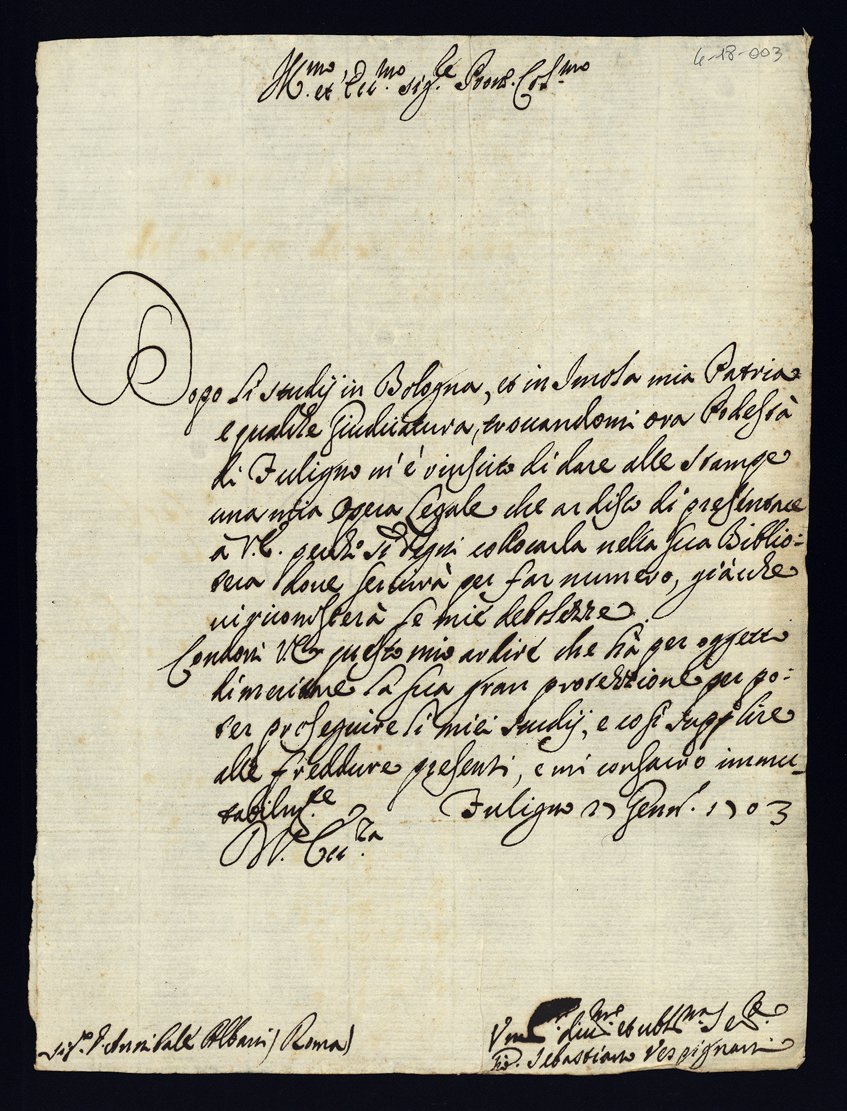 4-18-003
Ill.mo et Ecc.mo Sig.re Pron. Col.mo
Dopo li studij in Bologna, et in Imola mia Patria
e qualche Giudicatura, trovandomi ora Podestà
di Fuligno m'è riuscito di dare alle stampe
una mia Opera Legale che ardisco di presentare
a V.E. perché si degni collocarla nella sua Biblio=
teca dove servirà per far numero, giache
vi riconoscerà le mie debolezze.
Condoni V.E. questo mio ardire che hà per oggetto
di meritarne la sua gran protezzione per po=
ter proseguire li miei studij, e così supplire
alle freddure presenti, e mi consacro immu=
tabilm.te Fuligno 27 Genn. 1703
D. V. Ecc.za
Sig.re D. Annibale Albani (Roma)
et obb.mo
Sebastiano Vespignani